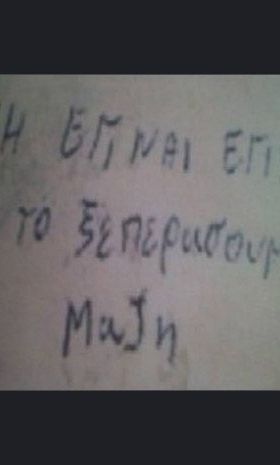 Η ΕΓΙΝΑΙ ΕΓΙ
το ξεπερασουμ
Μαζη